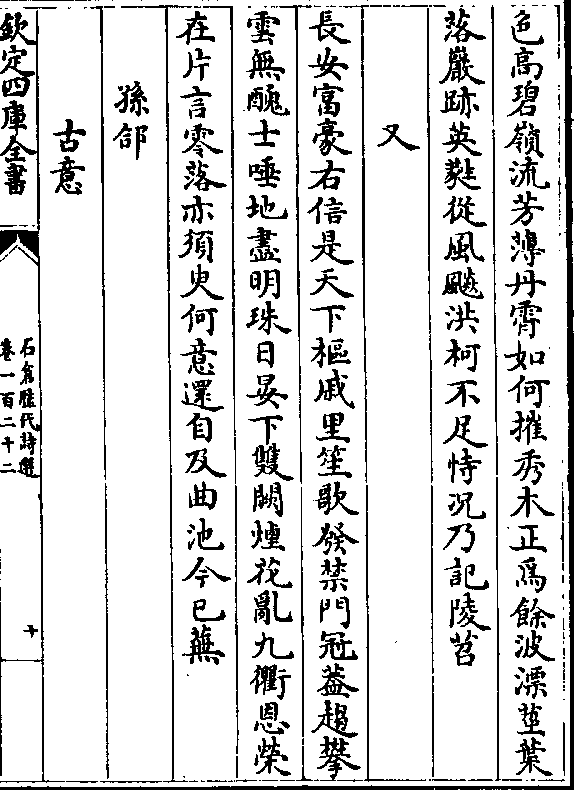 色高碧嶺流芳薄丹霄如何摧秀木正為餘波漂莖葉
落巖跡英蕤從風飈洪柯不足恃況乃託陵苕
又
長安富豪右信是天下樞戚里笙歌發禁門冠蓋趨攀
雲無醜士唾地盡明珠日晏下雙闕煙花亂九衢恩榮
在片言零落亦須臾何意還自及曲池今已蕪
孫郃
古意
欽定四庫全書
石倉歷代詩選
卷一百二十二
十